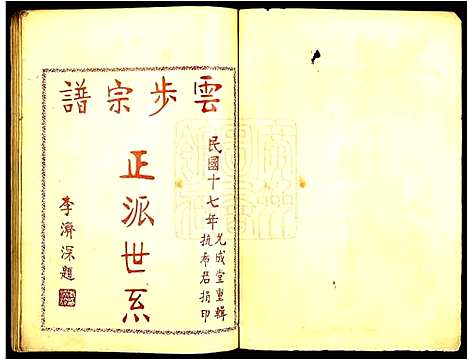 雲步宗譜
民國十七年
光成堂重輯
抗希君捐印
正派世系
李濟深題